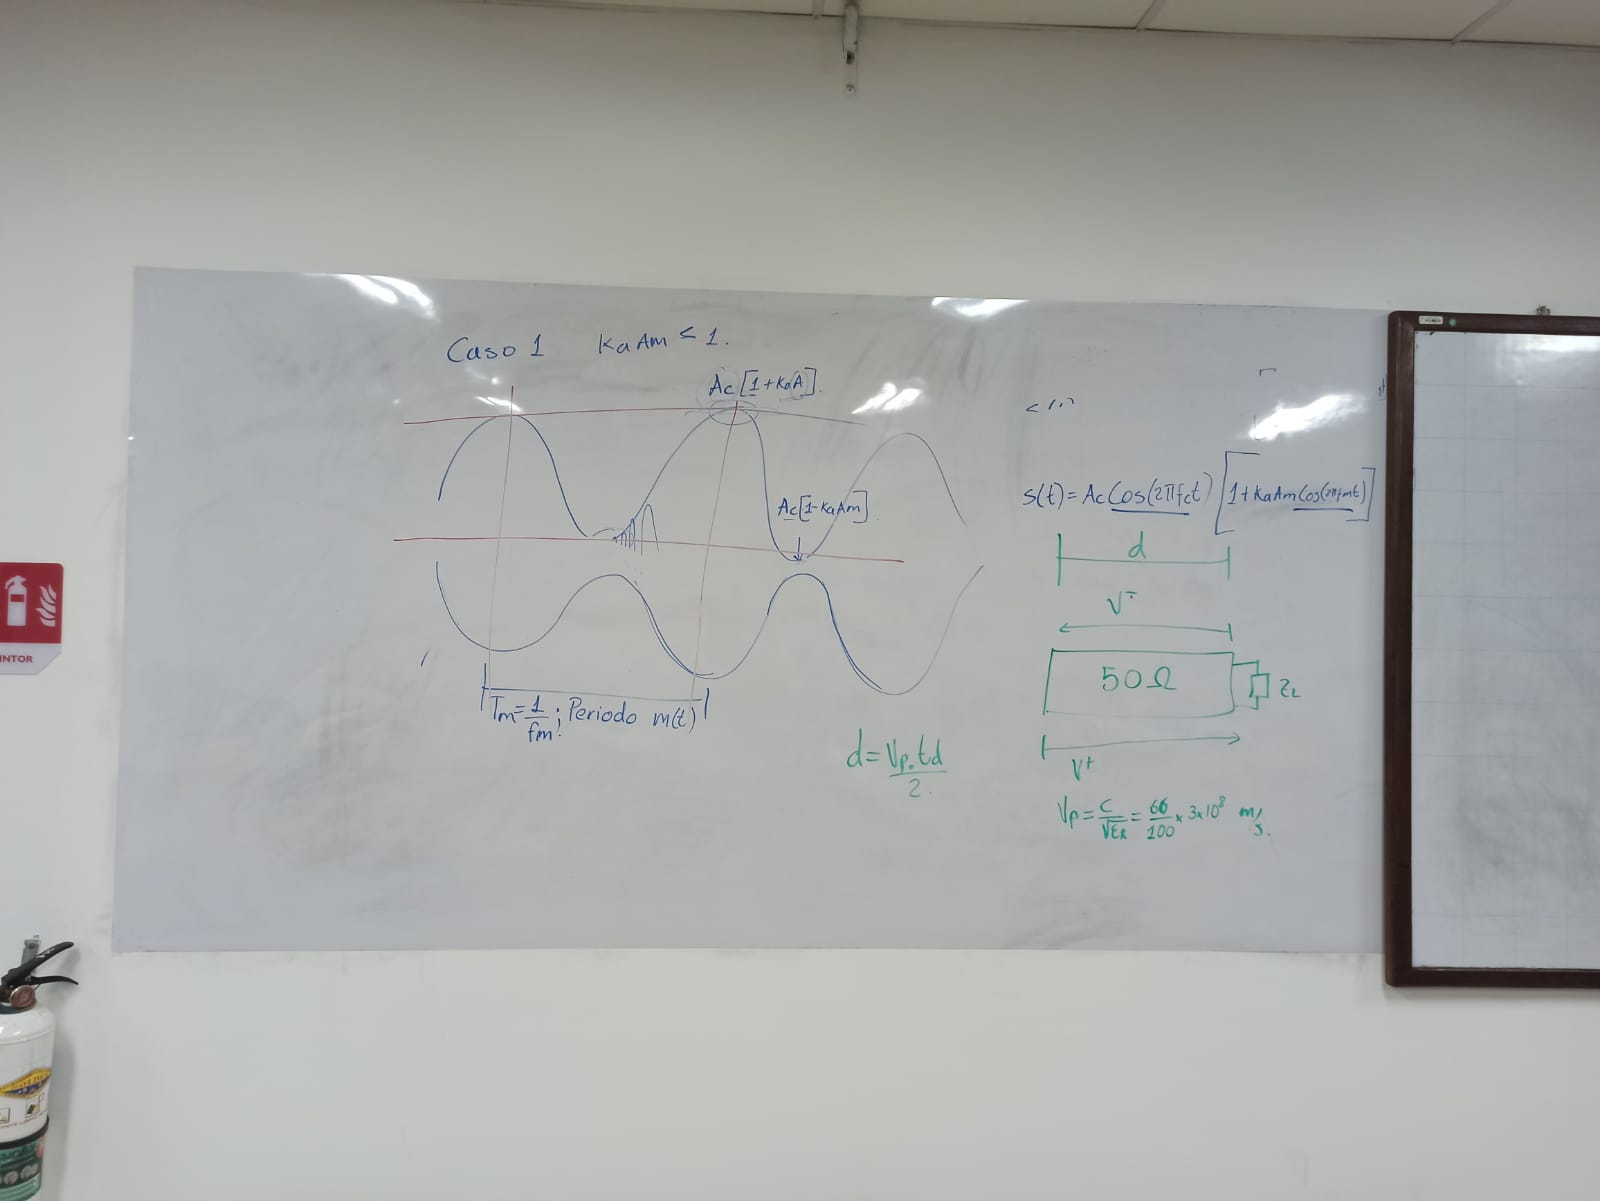 Caso 1 KaAm ≤ 1.
Ac[1+KaA].
Ac[1-KaAm]
Tm=1/fm; Periodo m(t)
s(t)=AcCos(2πfct)[1+KaAmCos(2πfmt)]
d
V-
50Ω
ZL
V+
d=Vp.td/2.
Vp=C/√εR=66/100×3×10⁸ m/s.
INTOR